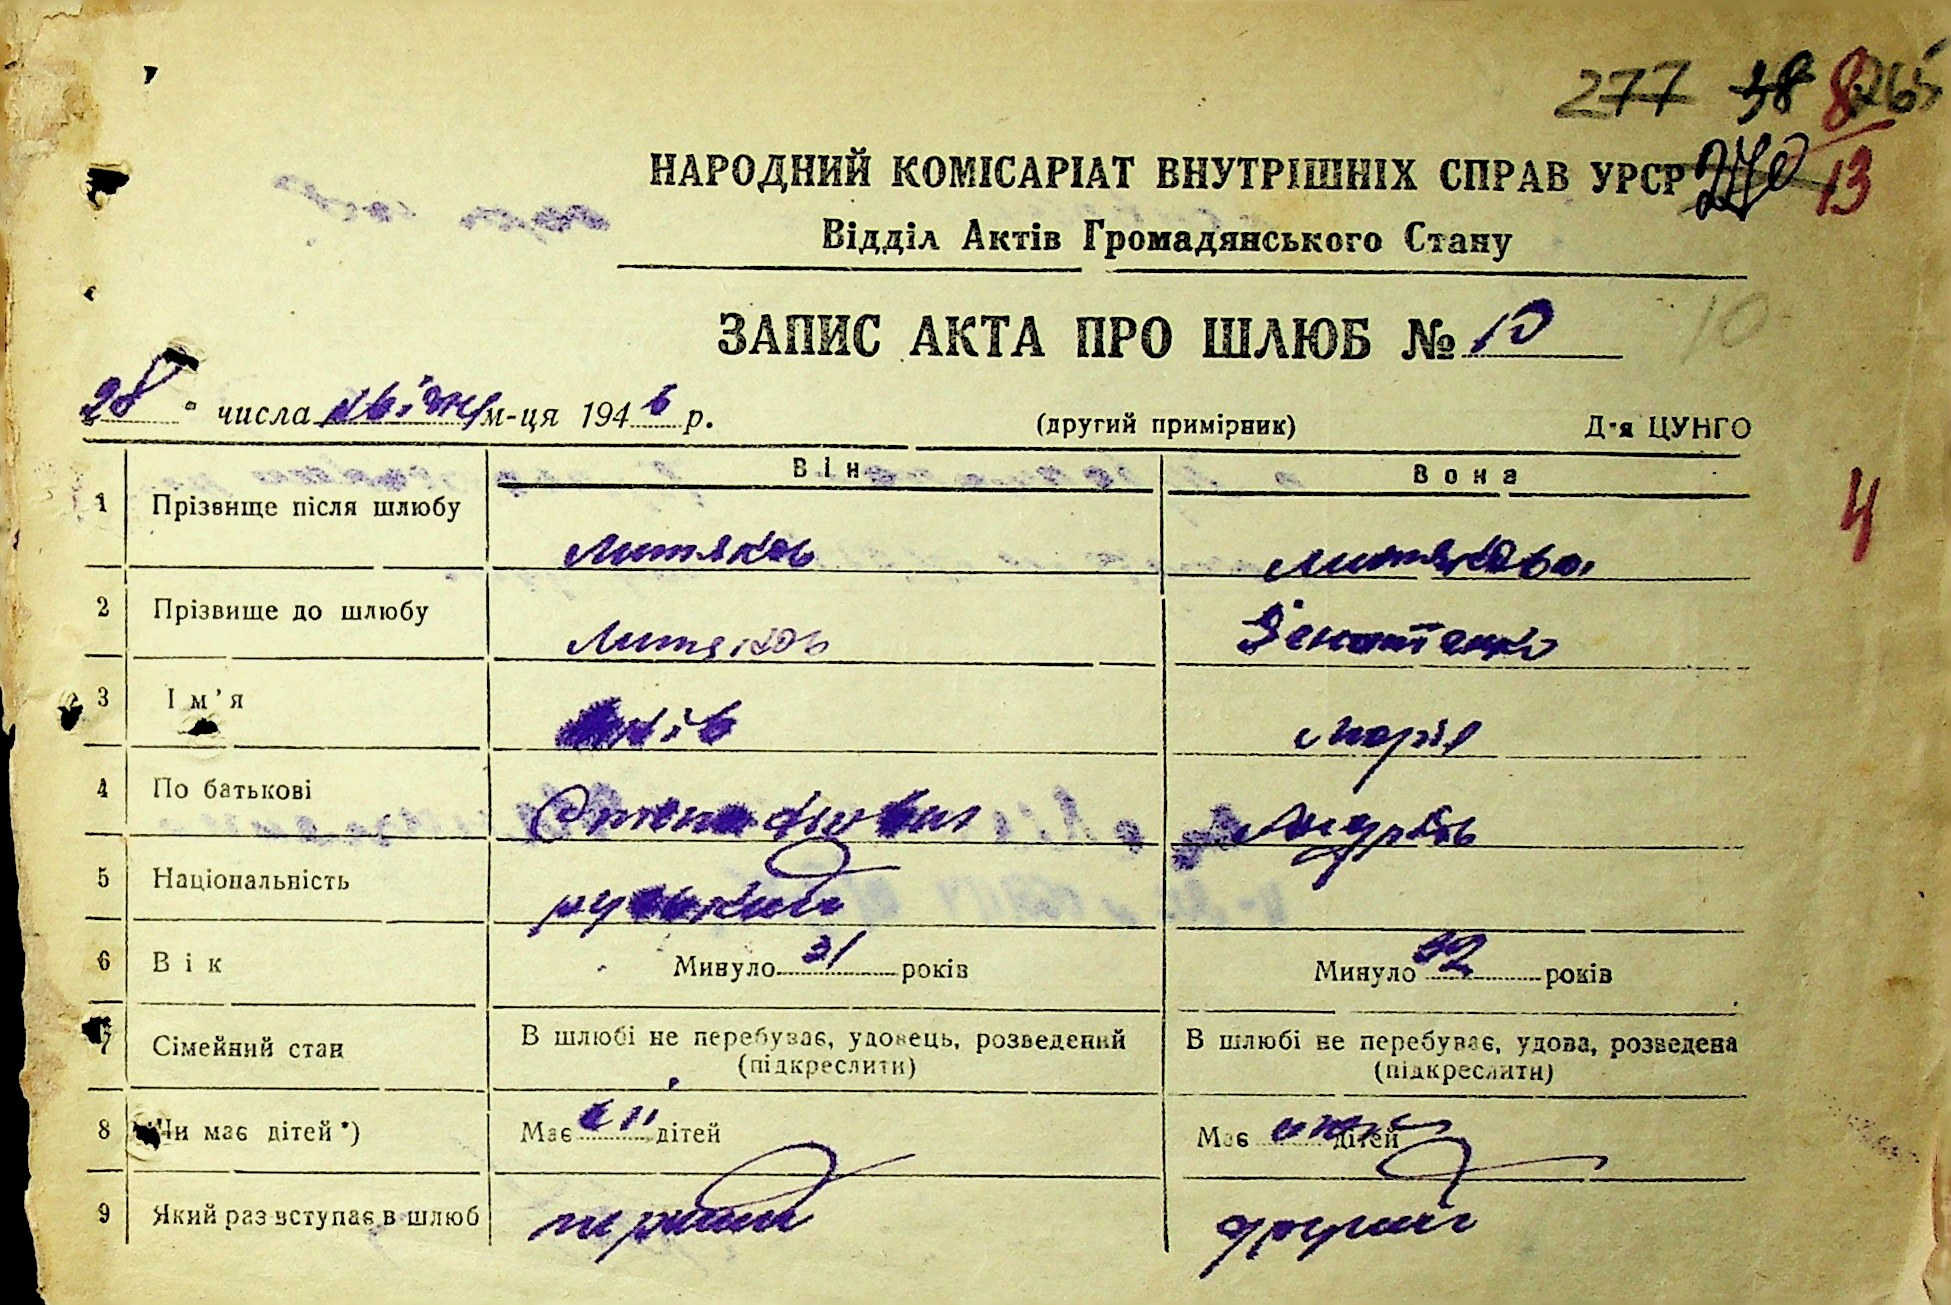 277 38 8 265
НАРОДНИЙ КОМІСАРІАТ ВНУТРІШНІХ СПРАВ УРСР 270 13
Відділ Актів Громадянського Стану
ЗАПИС АКТА ПРО ШЛЮБ № 10 10
28 " числа квітня м-ця 1946 р. (другий примірник) Д-я ЦУНГО
Він Вона
1 Прізвище після шлюбу Митяков Митякова
4
2 Прізвище до шлюбу Митяков
3 Ім'я Марія
4 По батькові
5 Національність руський
6 Вік Минуло 31 років Минуло 32 років
7 Сімейний стан В шлюбі не перебуває, удовець, розведений В шлюбі не перебуває, удова, розведена
(підкреслити) (підкреслити)
8 Чи має дітей*) Має дітей Має дітей
9 Який раз вступає в шлюб перший другий